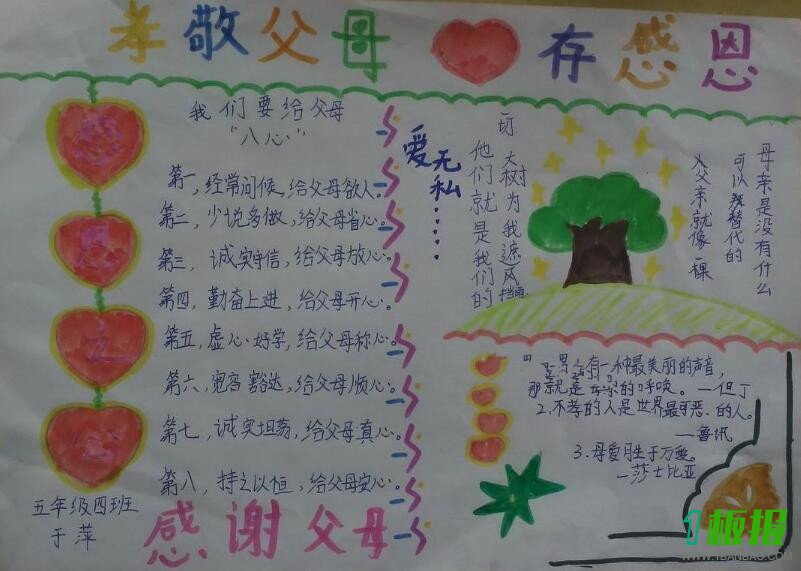 孝敬父母 存感恩
我们要给父母
“八心”
第一,经常问候,给父母
第二,少说多做,给父母省心。
第三,诚实守信,给父母放心。
第四,勤奋上进,给父母开心。
第五,虚心好学,给父母称心。
第六,宽容豁达,给父母顺心。
第七,诚实坦荡,给父母真心。
第八,持之以恒,给父母安心。
五年级四班
于萍
感谢父母
爱无私……
母亲是没有什么
可以替代的
父亲就像一棵
大树为我遮风挡雨
他们就是我们的
一切
有一种最美丽的声音,
那就是的呼唤。—但丁
2.不孝的人是世界最可恶的人。
—鲁讯
3.母爱胜于万爱。
—莎士比亚
1板报
WWW.1BANBAO.COM